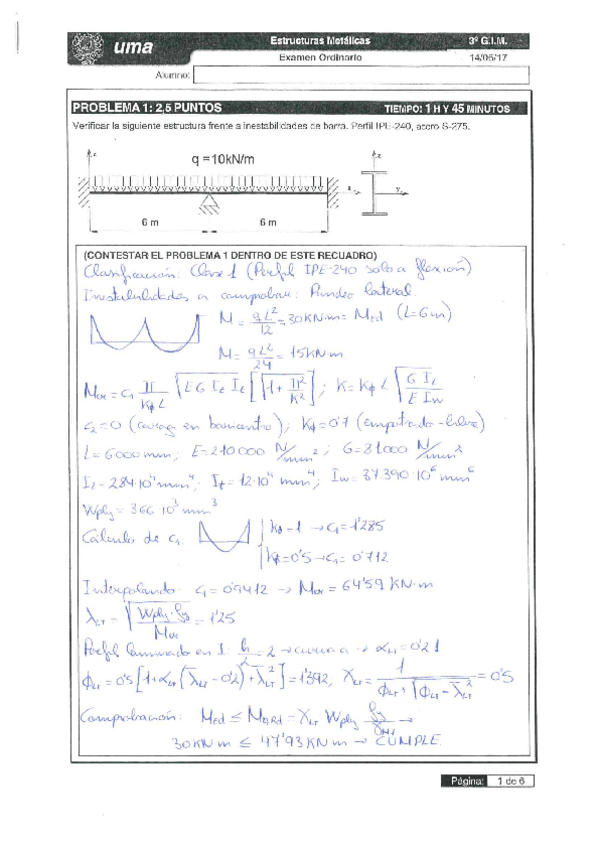 uma
Estructuras Metálicas
3º G.I.M.
Examen Ordinario
14/06/17
Alumno:
PROBLEMA 1: 2,5 PUNTOS
TIEMPO: 1 H Y 45 MINUTOS
Verificar la siguiente estructura frente a inestabilidades de barra. Perfil IPE-240, acero S-275.
z q =10kN/m z
x y
6 m 6 m
(CONTESTAR EL PROBLEMA 1 DENTRO DE ESTE RECUADRO)
Clasificación: Clase 1 (Perfil IPE-240 solo a flexión)
Inestabilidades a comprobar: Pandeo lateral.
M = qL²/12 = 30KN·m = M_Ed (L=6m)
M = qL²/24 = 15KN·m
Mcr = c₁ π/(Kφ L) √(E G I_t I_z) [√(1+ π²/K²)]; K = Kφ L √(G I_t / E I_w)
c₂=0 (carga en baricentro); Kφ=0'7 (empotrado-libre)
L=6000mm; E=210000 N/mm²; G=81000 N/mm²
I_z=284·10⁴mm⁴; I_t=12·10⁴ mm⁴; I_w=37.390·10⁶ mm⁶
Wply = 366·10³mm³
Cálculo de c₁: kφ=1 → c₁=1'285
kφ=0'5 → c₁=0'712
Interpolando: c₁=0'9412 → Mcr=64'59 KN·m
λ̄_LT = √(Wply·fy / Mcr) = 1'25
Perfil laminado en I: h/b = 2 → curva a → α_LT=0'21
φ_LT=0'5[1+α_LT(λ̄_LT -0'2)+λ̄_LT²]=1'392, χ_LT = 1/(φ_LT+√(φ_LT²-λ̄_LT²)) = 0'5
Comprobación: M_Ed ≤ M_b,Rd = χ_LT Wply fy/γ_M1 →
30KN·m ≤ 47'93KN·m → CUMPLE.
Página: 1 de 6